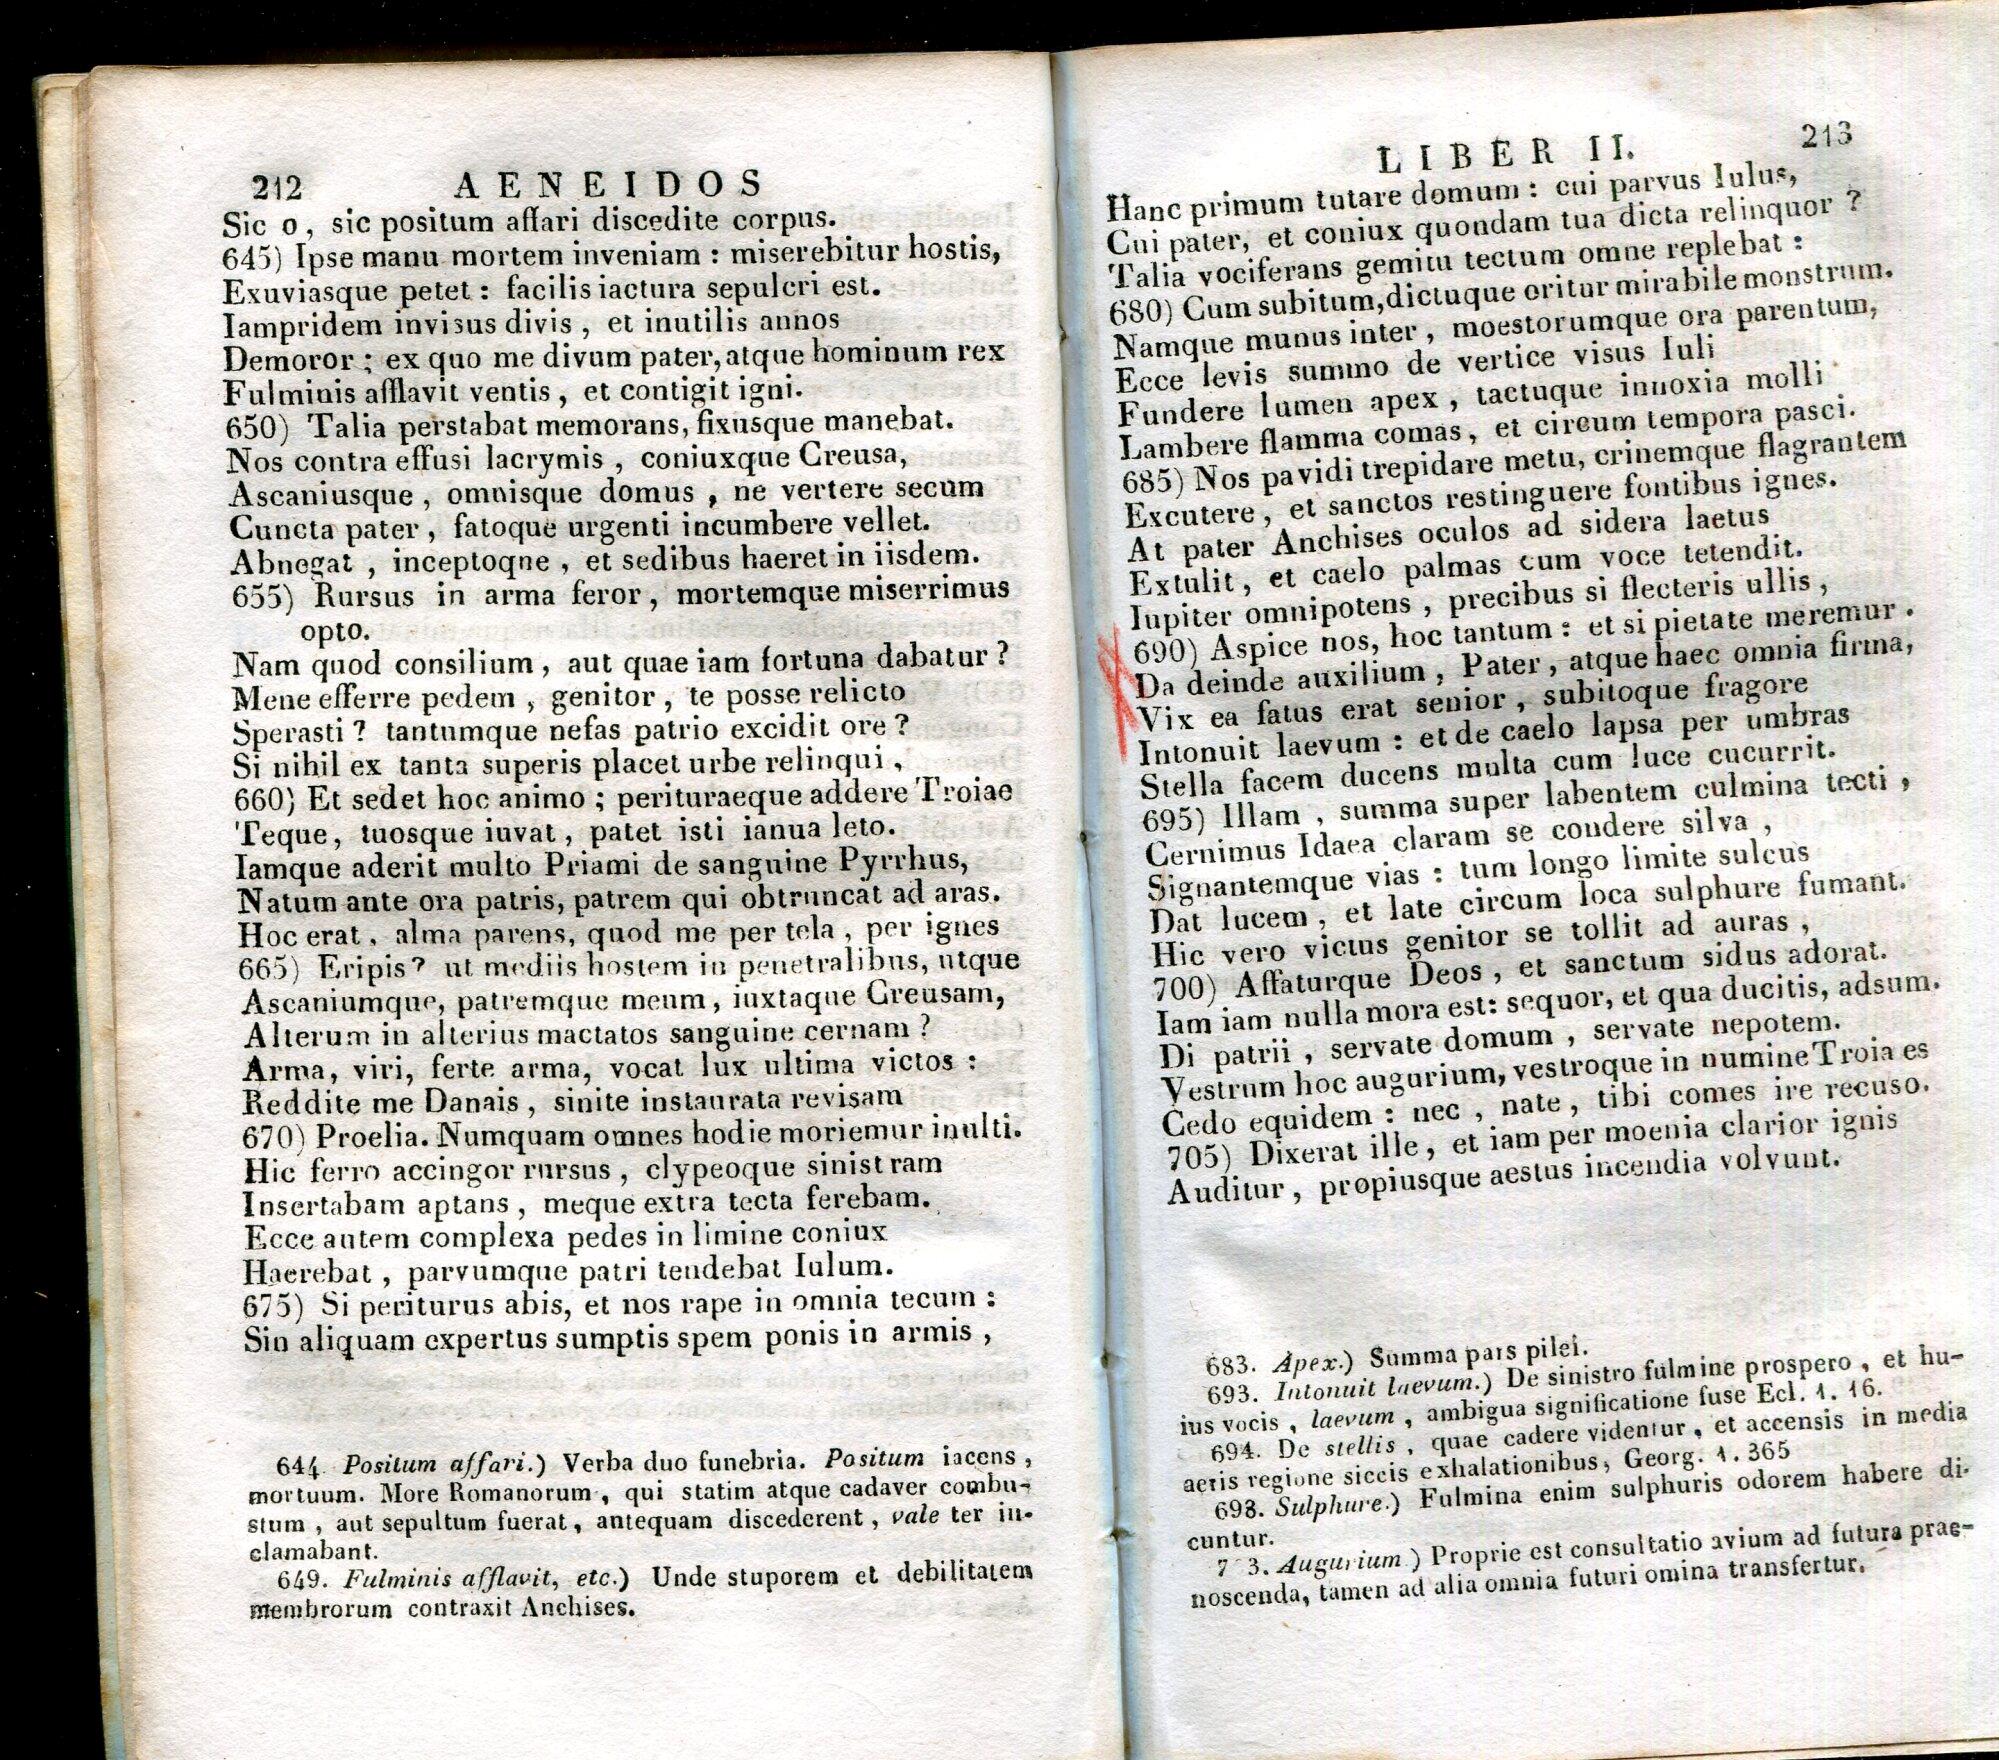 212 AENEIDOS
Sic o, sic positum affari discedite corpus.
645) Ipse manu mortem inveniam : miserebitur hostis,
Exuviasque petet : facilis iactura sepulcri est.
Iampridem invisus divis, et inutilis annos
Demoror ; ex quo me divum pater, atque hominum rex
Fulminis afflavit ventis, et contigit igni.
650) Talia perstabat memorans, fixusque manebat.
Nos contra effusi lacrymis, coniuxque Creusa,
Ascaniusque, omnisque domus, ne vertere secum
Cuncta pater, fatoque urgenti incumbere vellet.
Abnegat, inceptoqne, et sedibus haeret in iisdem.
655) Rursus in arma feror, mortemque miserrimus
opto.
Nam quod consilium, aut quae iam fortuna dabatur ?
Mene efferre pedem, genitor, te posse relicto
Sperasti ? tantumque nefas patrio excidit ore ?
Si nihil ex tanta superis placet urbe relinqui,
660) Et sedet hoc animo ; perituraeque addere Troiae
Teque, tuosque iuvat, patet isti ianua leto.
Iamque aderit multo Priami de sanguine Pyrrhus,
Natum ante ora patris, patrem qui obtruncat ad aras.
Hoc erat, alma parens, quod me per tela, per ignes
665) Eripis? ut mediis hostem in penetralibus, utque
Ascaniumque, patremque meum, iuxtaque Creusam,
Alterum in alterius mactatos sanguine cernam ?
Arma, viri, ferte arma, vocat lux ultima victos :
Reddite me Danais, sinite instaurata revisam
670) Proelia. Numquam omnes hodie moriemur inulti.
Hic ferro accingor rursus, clypeoque sinistram
Insertabam aptans, meque extra tecta ferebam.
Ecce autem complexa pedes in limine coniux
Haerebat, parvumque patri tendebat Iulum.
675) Si periturus abis, et nos rape in omnia tecum :
Sin aliquam expertus sumptis spem ponis in armis,
644. Positum affari.) Verba duo funebria. Positum iacens,
mortuum. More Romanorum, qui statim atque cadaver combu-
stum, aut sepultum fuerat, antequam discederent, vale ter in-
clamabant.
649. Fulminis afflavit, etc.) Unde stuporem et debilitatem
membrorum contraxit Anchises.
LIBER II. 213
Hanc primum tutare domum : cui parvus Iulus,
Cui pater, et coniux quondam tua dicta relinquor ?
Talia vociferans gemitu tectum omne replebat :
680) Cum subitum, dictuque oritur mirabile monstrum.
Namque munus inter, moestorumque ora parentum,
Ecce levis summo de vertice visus Iuli
Fundere lumen apex, tactuque innoxia molli
Lambere flamma comas, et circum tempora pasci.
685) Nos pavidi trepidare metu, crinemque flagrantem
Excutere, et sanctos restinguere fontibus ignes.
At pater Anchises oculos ad sidera laetus
Extulit, et caelo palmas cum voce tetendit.
Iupiter omnipotens, precibus si flecteris ullis,
690) Aspice nos, hoc tantum : et si pietate meremur.
Da deinde auxilium, Pater, atque haec omnia firma,
Vix ea fatus erat senior, subitoque fragore
Intonuit laevum : et de caelo lapsa per umbras
Stella facem ducens multa cum luce cucurrit.
695) Illam, summa super labentem culmina tecti,
Cernimus Idaea claram se condere silva,
Signantemque vias : tum longo limite sulcus
Dat lucem, et late circum loca sulphure fumant.
Hic vero victus genitor se tollit ad auras,
700) Affaturque Deos, et sanctum sidus adorat.
Iam iam nulla mora est: sequor, et qua ducitis, adsum.
Di patrii, servate domum, servate nepotem.
Vestrum hoc augurium, vestroque in numine Troia es
Cedo equidem : nec, nate, tibi comes ire recuso.
705) Dixerat ille, et iam per moenia clarior ignis
Auditur, propiusque aestus incendia volvunt.
683. Apex.) Summa pars pilei.
693. Intonuit laevum.) De sinistro fulmine prospero, et hu-
ius vocis, laevum, ambigua significatione fuse Ecl. 1. 16.
694. De stellis, quae cadere videntur, et accensis in media
aeris regione siccis exhalationibus, Georg. 1. 365
698. Sulphure.) Fulmina enim sulphuris odorem habere di-
cuntur.
7 3. Augurium) Proprie est consultatio avium ad futura prae-
noscenda, tamen ad alia omnia futuri omina transfertur.